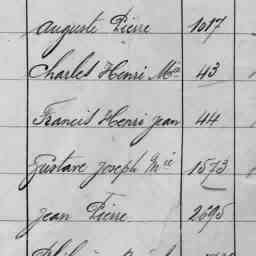 Auguste Pierre 1017
Charles Henri Mie 43
Francis Henri Jean 44
Gustave Joseph Mie 1573
Jean Pierre 2695